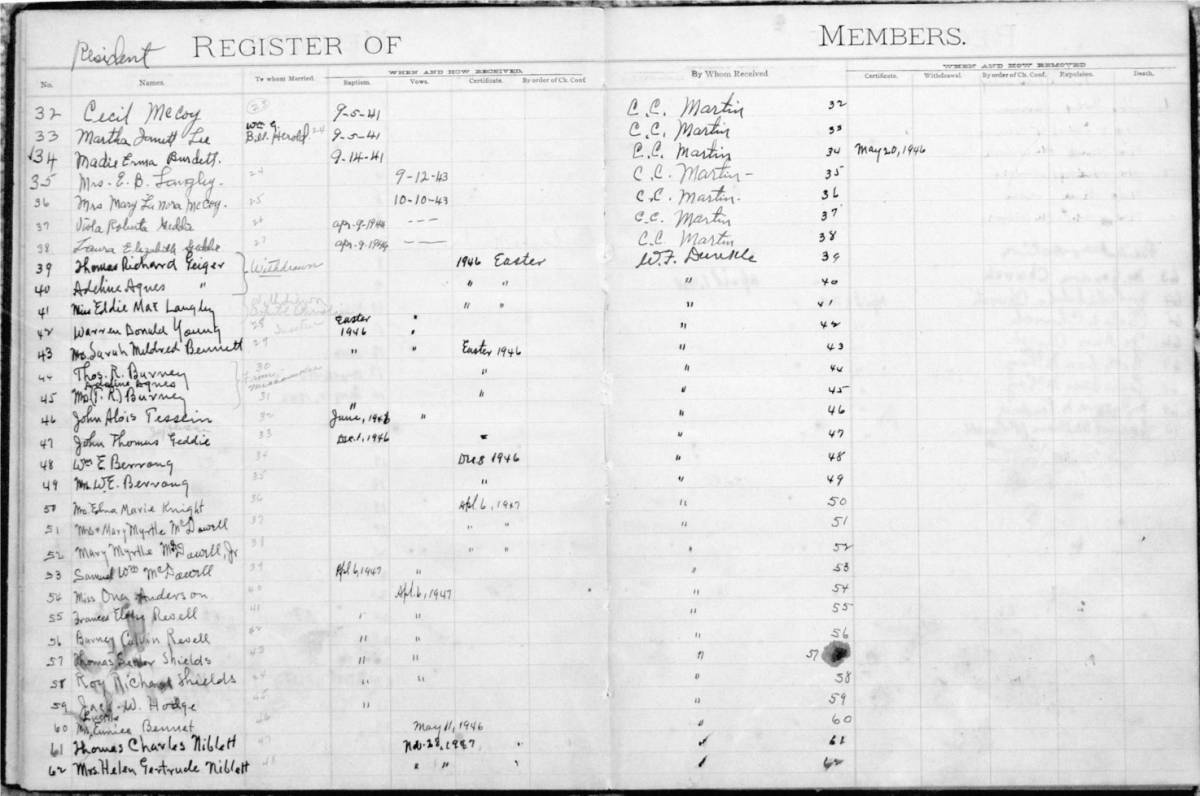 Resident REGISTER OF MEMBERS.
WHEN AND HOW RECEIVED. WHEN AND HOW REMOVED
No. Names. To whom Married. Baptism. Vows. Certificate. By order of Ch. Conf. By Whom Received Certificate. Withdrawal. By order of Ch. Conf. Expulsion. Death.
32 Cecil McCoy 9-5-41 C.C. Martin 32
33 Martha Lee Bill Herold 24 9-5-41 C.C. Martin 33
34 Madie Erma Burdett. 9-14-41 C.C. Martin 34 May 20, 1946
35 Mrs. E. B. Langley. 24 9-12-43 C.C. Martin- 35
36 Mrs Mary Lenora McCoy. 25 10-10-43 C.C. Martin- 36
37 Viola Roberta Geddie 26 apr-9-1944 --- C.C. Martin 37
38 Laura Elizabeth Geddie 27 apr-9-1944 --- C.C. Martin 38
39 Thomas Richard Geiger Withdrawn 1946 Easter W.F. Dunkle 39
40 Adeline Agnes " " " " 40
41 Miss Eddie Mae Langley " " " 41
42 Warren Donald Young 28 Easter 1946 " " 42
43 Mrs. Sarah Mildred Bennett 29 " " Easter 1946 " 43
44 Thos. R. Burney 30 From " " 44
Adeline Agnes
45 Mrs (T. R.) Burney 31 " " 45
46 John Alois Tessein 32 June, 1946 " " 46
47 John Thomas Geddie 33 Dec. 1, 1946 " " 47
48 Wm E Berrong 34 Dec 8 1946 " 48
49 Mrs. W.E. Berrong 35 " " 49
50 Mrs Edna Marie Knight 36 Apl. 6, 1947 " 50
51 Mrs Mary Myrtle McDowell 37 " " " 51
52 Mary Myrtle McDowell, Jr 38 " " " 52
53 Samuel Wm McDowell 39 Apl. 6, 1947 " " 53
54 Miss Ona Anderson 40 Apl. 6, 1947 " 54
55 Frances Revell 41 " " " 55
56 Burney Calvin Revell 42 " " " 56
57 Thomas Shields 43 " " " 57
58 Roy Richard Shields 44 " " " 58
59 Jack W. Hodge 45 " " 59
60 Mrs. Eunice Bennet 46 May 11, 1946 " 60
61 Thomas Charles Niblett 47 Nov. 28, 1947 " " 61
62 Mrs. Helen Gertrude Niblett 48 " " " " 62